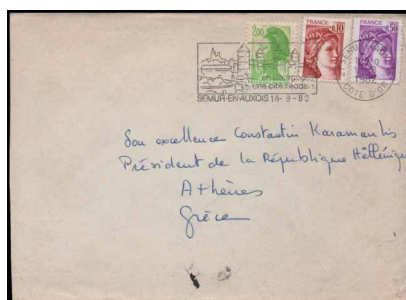 2,00
FRANCE
0,10
FRANCE
0,50
en bourgogne
une cité féodale
SEMUR-EN-AUXOIS 18-9-82
COTE D'OR
Son excellence Constantin Karamanlis
Président de la République Hellénique
Athènes
Grèce